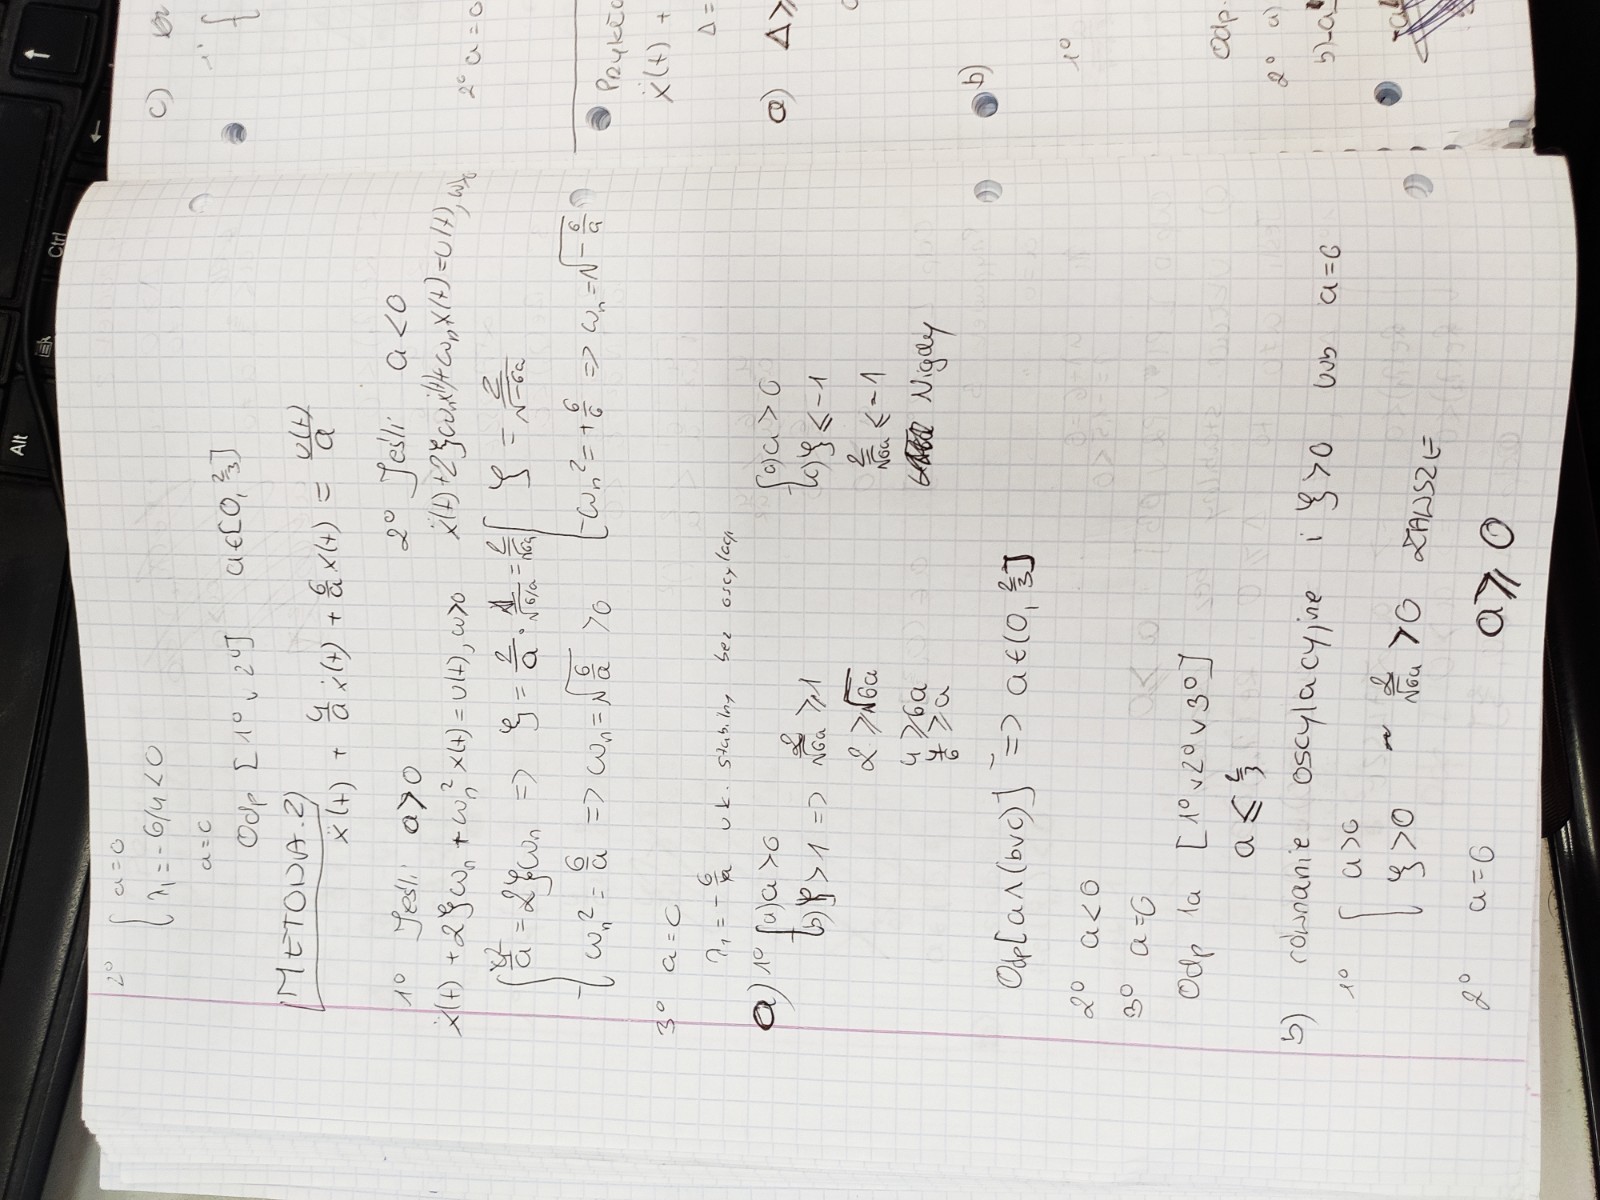 2° { a=0
λ₁ = -6/4 < 0
a=0
Odp [1° ∨ 2°] a∈[0, 2/3]
METODA.2)
ẍ(t) + 4/a ẋ(t) + 6/a x(t) = u(t)/a
1° Jeśli a>0
ẍ(t) + 2ξωn + ωn² x(t) = u(t), ω>0
{ 4/a = 2ξωn => ξ = 2/a · 1/√6/a = 2/√6a
ωn² = 6/a => ωn = √6/a > 0
2° Jeśli a<0
ẍ(t) + 2ξωnẋ(t) + ωn x(t) = u(t), ωn
{ ξ = 2/√-6a
-ωn² = +6/a => ωn = √-6/a
3° a=0
λ₁ = -6/4 uk. stabilny bez oscylacji
a) 1° { a) a>0
b) ξ>1 => 2/√6a ≥ 1
2 ≥ √6a
4 ≥ 6a
4/6 ≥ a
{ a) a>0
c) ξ ≤ -1
2/√6a ≤ -1
Nigdy
Odp [a ∧ (b∨c)] => a∈(0, 2/3]
2° a<0
3° a=0
Odp 1a [1° ∨ 2° ∨ 3°]
a ≤ 2/3
b) równanie oscylacyjne i ξ>0 lub a=0
1° { a>0
ξ>0 ~ 2/√6a > 0 ZAWSZE
2° a=0 a ≥ 0
c)
1° {
2° a=0
ẍ(t) +
Δ =
a) Δ ≥
b)
1°
Odp.
2° a)
b)
Alt
Ctrl